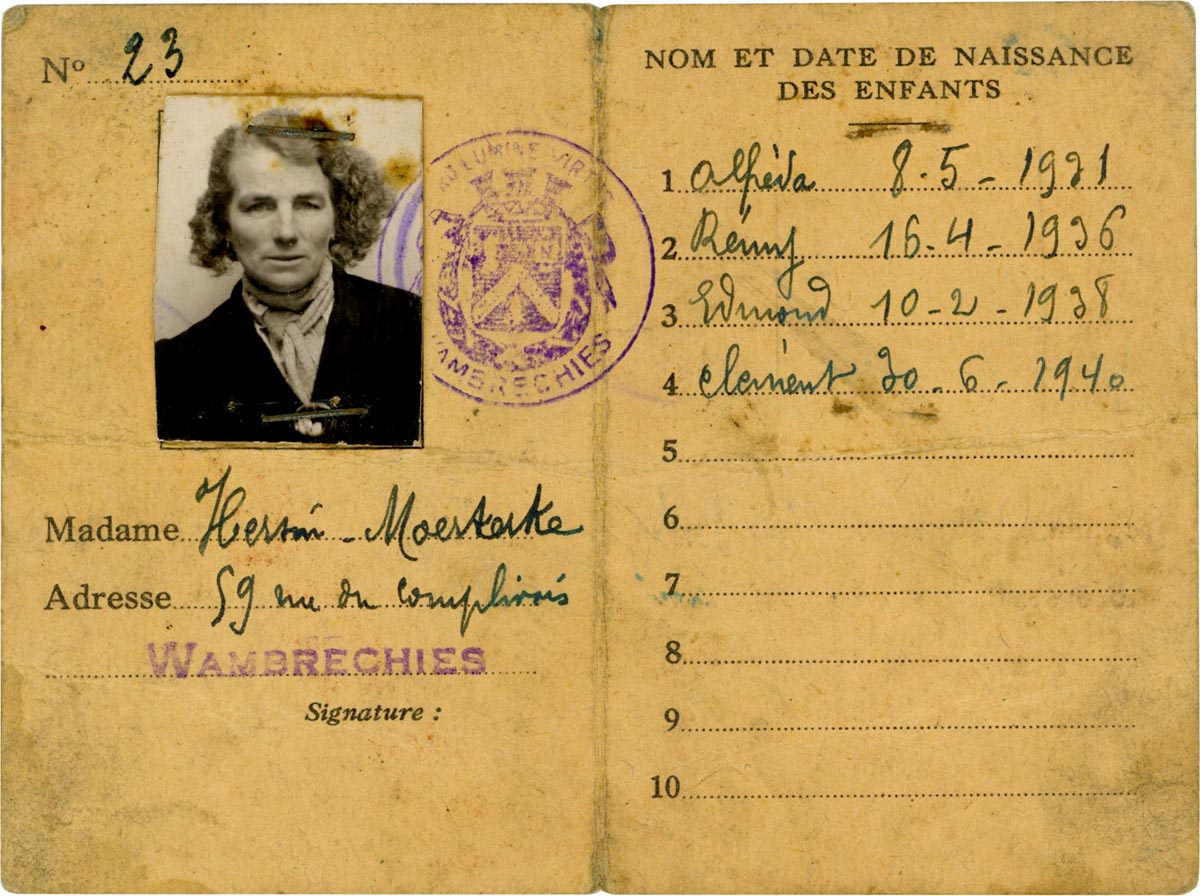 Nº 23
AD LUMINE VIR
WAMBRECHIES
Madame Hersin - Moesterke
Adresse 59 rue du complivois
WAMBRECHIES
Signature :
NOM ET DATE DE NAISSANCE
DES ENFANTS
1 Alfréda 8-5-1931
2 Rémy 16-4-1936
3 Edmond 10-2-1938
4 clément 30-6-1940
5
6
7
8
9
10